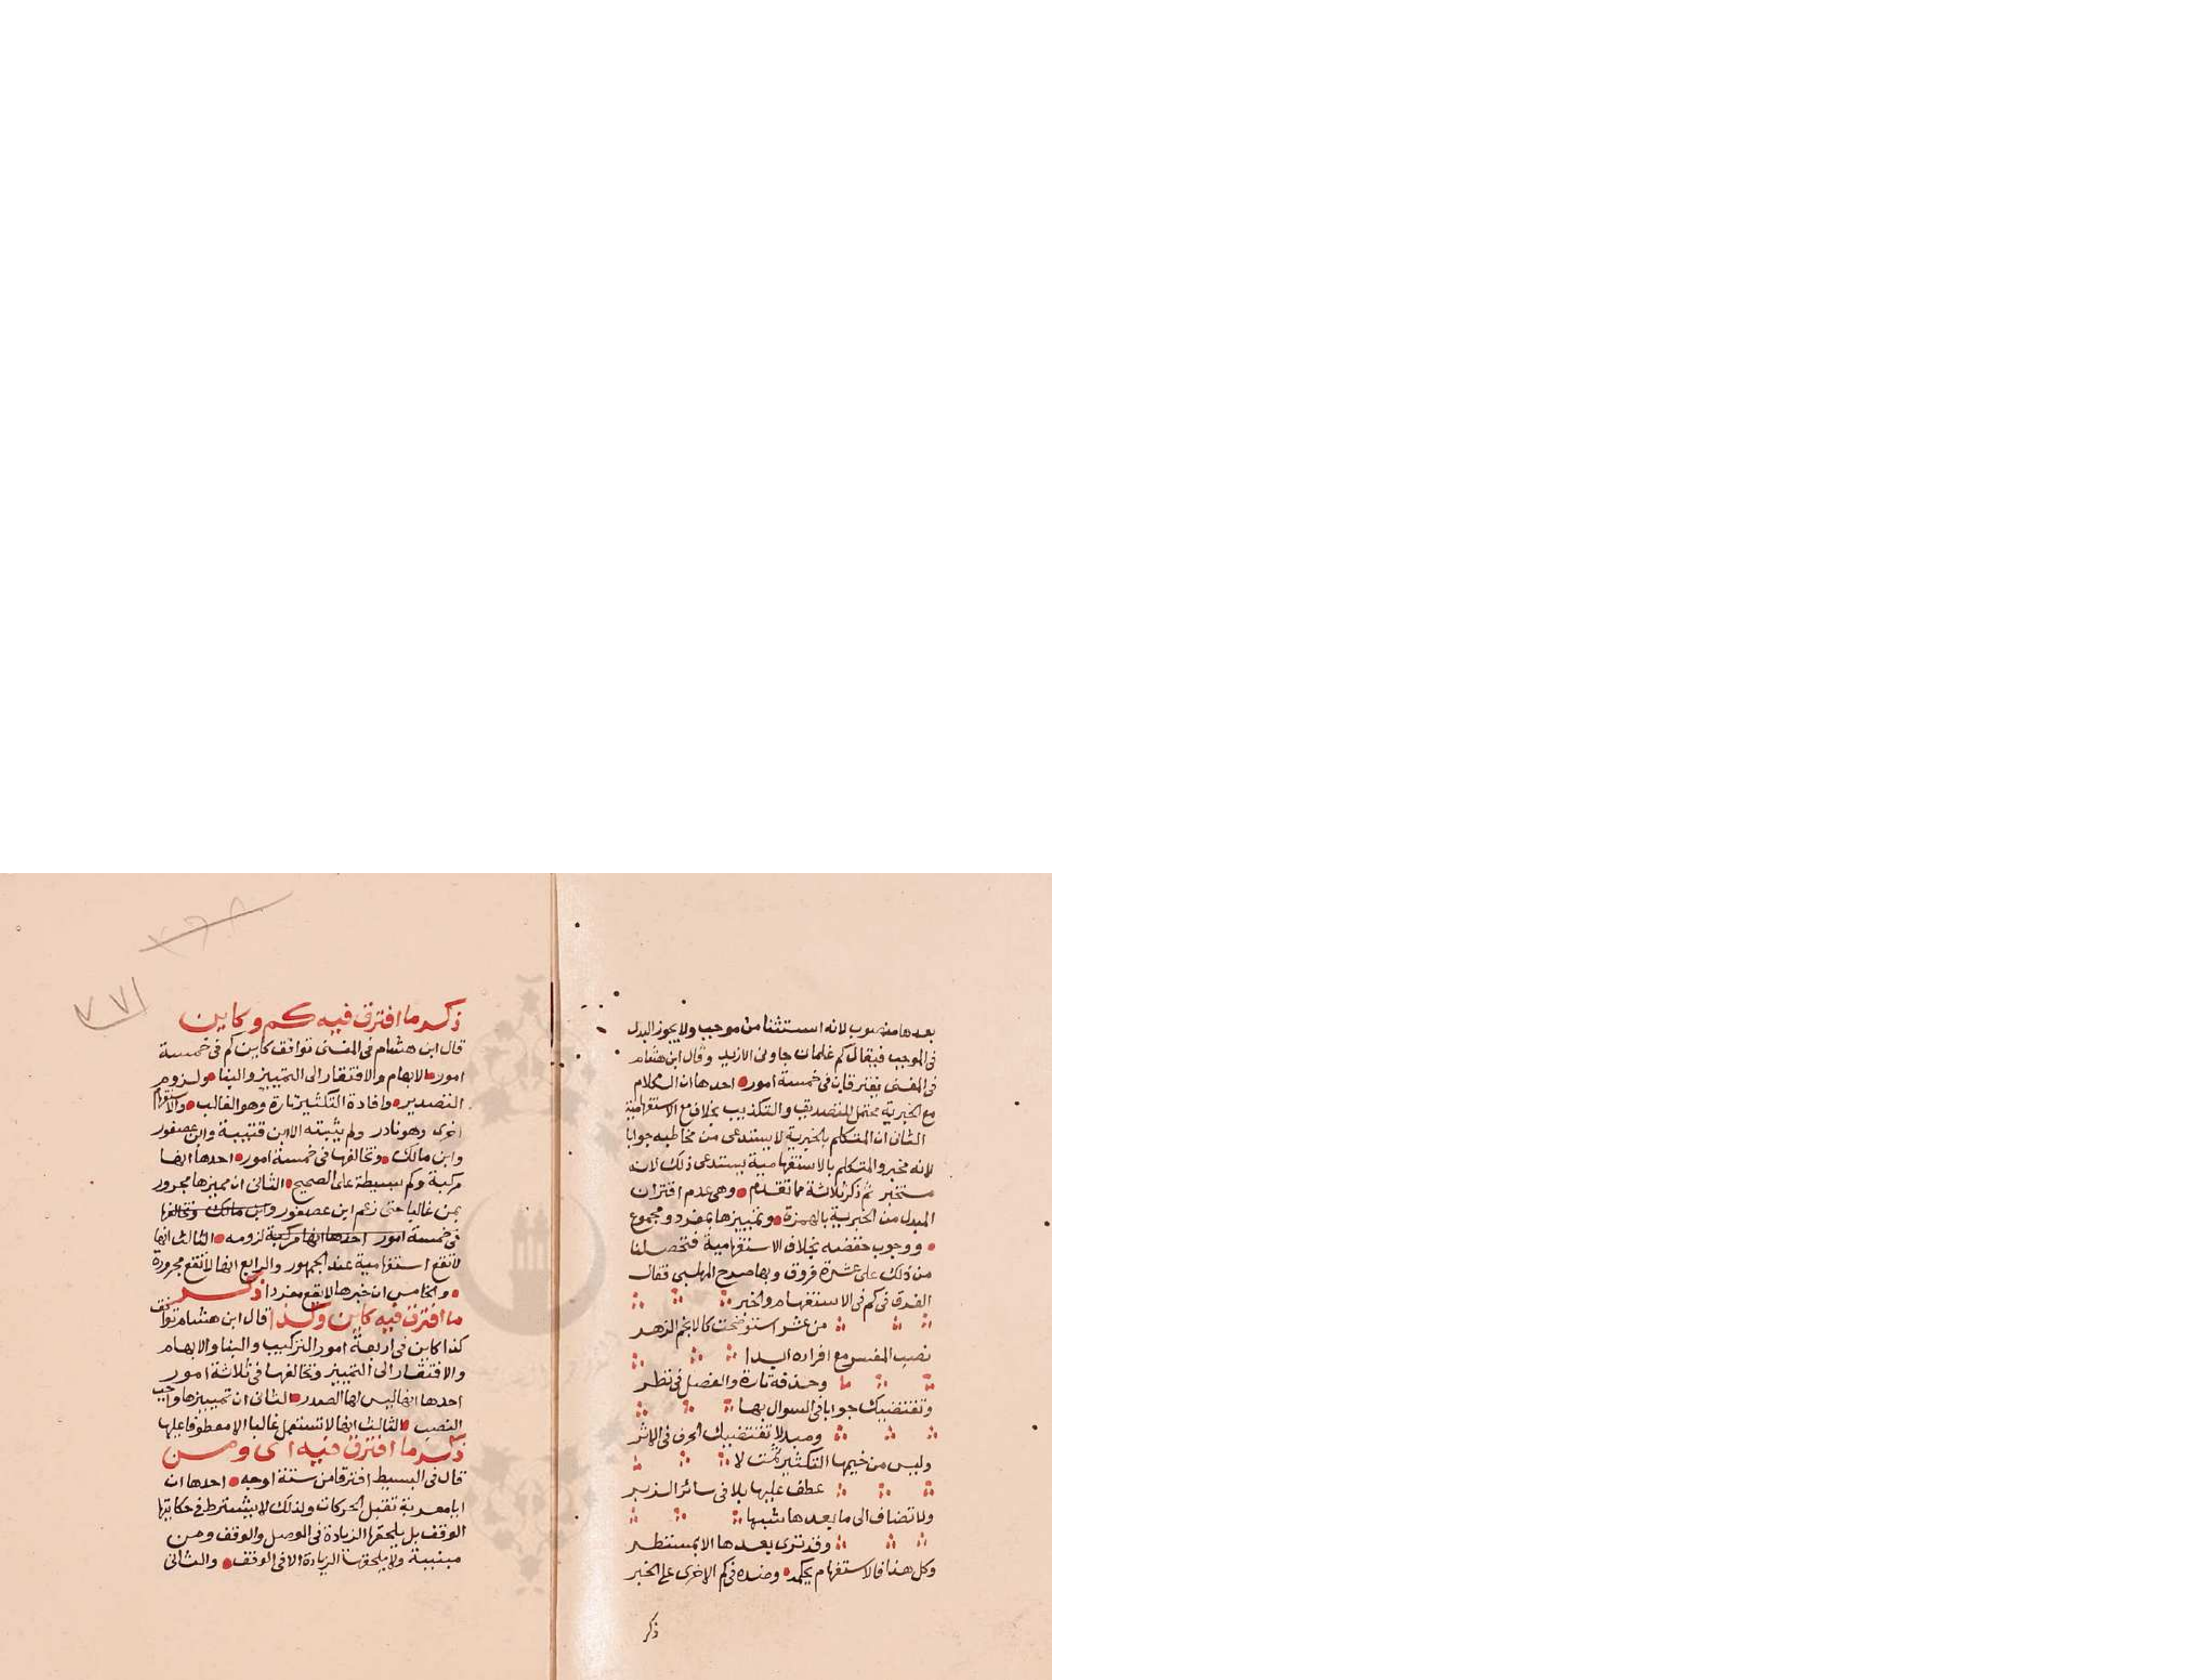 بعدها منصوب لانه استثنا من موجب ولا يجوز البدل
في الموجب فيقال كم غلمان جاوني الا زيد وقال ابن هشام
في المغني يفترقان في خمسة امور احدها ان الكلام
مع الخبرية محتمل للتصديق والتكذيب بخلافه مع الاستفهامية
الثاني ان المتكلم بالخبرية لا يستدعي من مخاطبه جوابا
لانه مخبر والمتكلم بالاستفهامية يستدعي ذلك لانه
مستخبر ثم ذكر ثلاثة مما تقدم وهي عدم اقتران
المبدل من الخبرية بالهمزة وتمييزها بمفرد ومجموع
ووجوب خفضه بخلاف الاستفهامية فتحصل لنا
من ذلك على عشرة فروق وبها صرح المهلبي فقال
الفرق في كم في الاستفهام والخبر
من عشر استوضحت كالانجم الزهر
نصب المفسر مع افراده ابدا
وحذفه تارة والفصل في نظر
وتقتضيك جوابا في السوال بها
ومبدلا تقتضيك الحرف في الاثر
وليس من خيمها التكثير ثمت لا
عطف عليها بلا في سائر الزبر
ولا تضاف الى ما بعدها شبها
وقد ترى بعدها الا بمستطر
وكل هذا فالاستفهام يحكمه وضده في كم الاخرى على الخبر
ذكر
٧٧١
ذكر ما افترق فيه كم وكاين
قال ابن هشام في المغني توافق كاين كم في خمسة
امور الابهام والافتقار الى التمييز والبنا ولزوم
التصدير وافادة التكثير تارة وهو الغالب والاستفهام
اخرى وهو نادر ولم يثبته الا ابن قتيبة وابن عصفور
وابن مالك وتخالفها في خمسة امور احدها انها
مركبة وكم بسيطة على الصحيح الثاني ان مميزها مجرور
بمن غالبا حتى زعم ابن عصفور وابن مالك وتخالفها
في خمسة امور احدها انها مركبة لزومه الثالث انها
لا تقع استفهامية عند الجمهور والرابع انها لا تقع مجرورة
والخامس ان خبرها لا يقع مفردا ذكر
ما افترق فيه كاين وكذا قال ابن هشام توافق
كذا كاين في اربعة امور التركيب والبنا والابهام
والافتقار الى التمييز وتخالفها في ثلاثة امور
احدها انها ليس لها الصدر الثاني ان تمييزها واجب
النصب الثالث انها لا تستعمل غالبا الا معطوفا عليها
ذكر ما افترق فيه اي ومن
قال في البسيط افترقا من ستة اوجه احدها ان
ايا معربة تقبل الحركات ولذلك لا يشترط في حكايتها
الوقف بل يلحقها الزيادة في الوصل والوقف ومن
مبنية ولا يلحقها الزيادة الا في الوقف والثاني